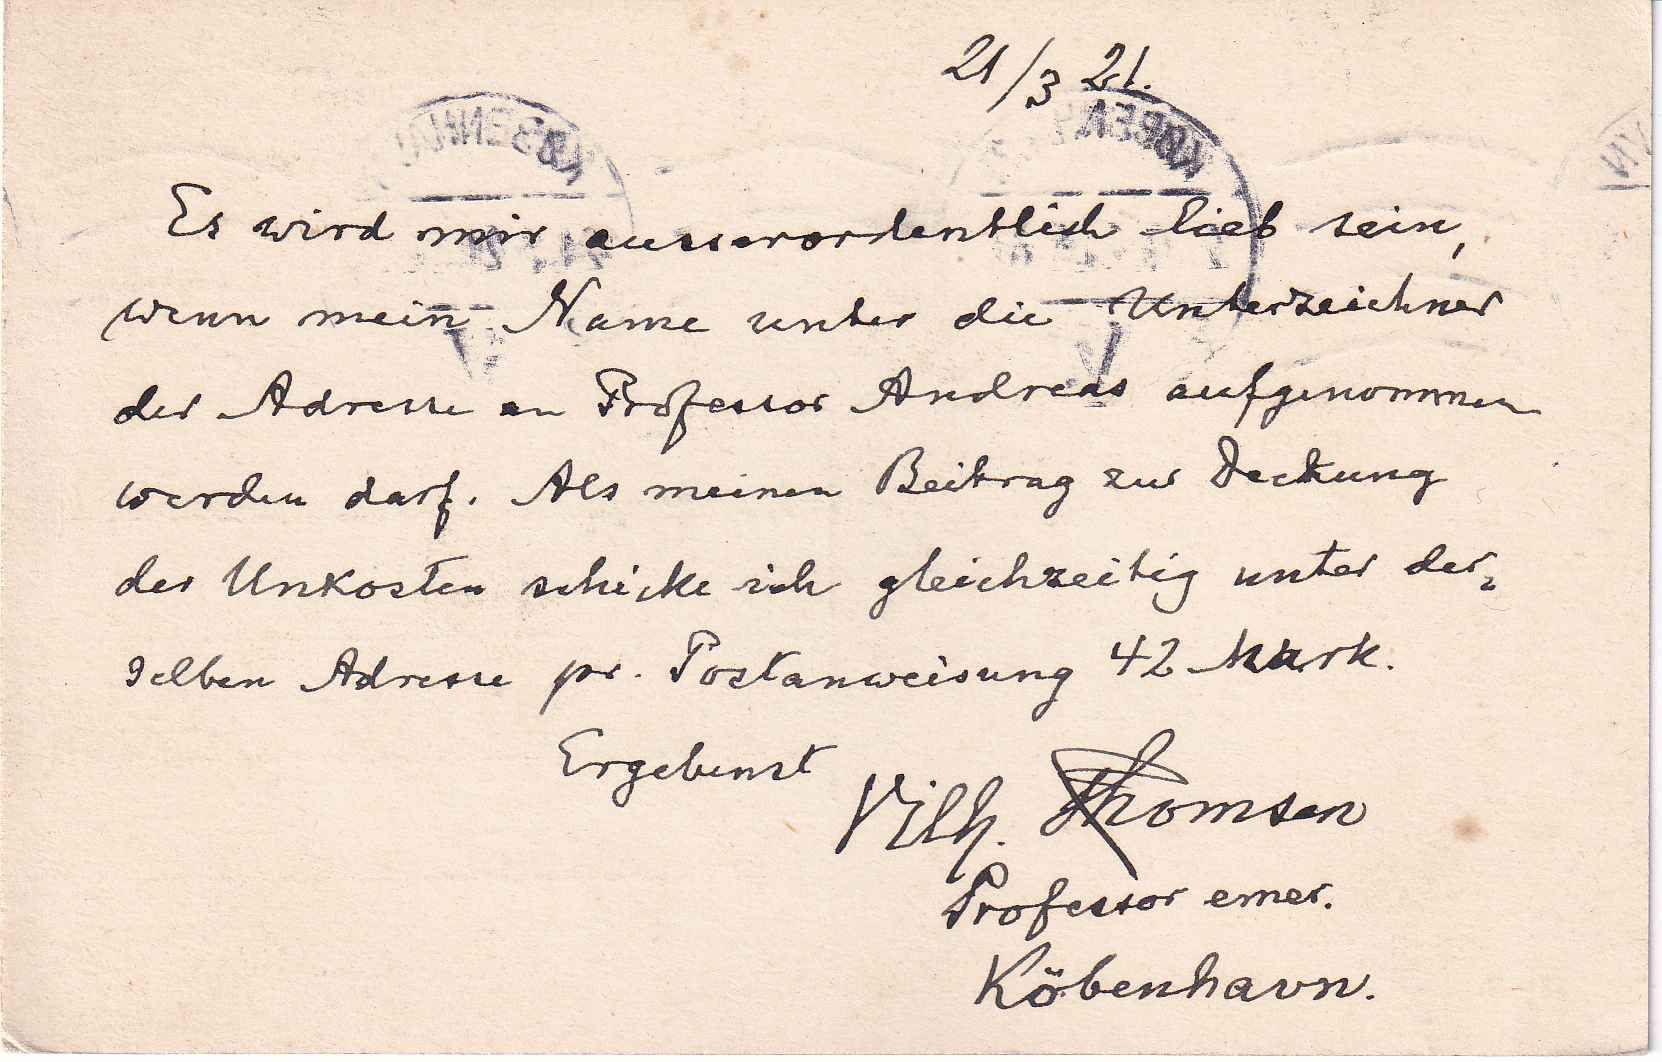 21/3 21.
Es wird mir ausserordentlich lieb sein,
wenn mein Name unter die Unterzeichner
der Adresse an Professor Andreas aufgenommen
werden darf. Als meinen Beitrag zur Deckung
der Unkosten schicke ich gleichzeitig unter der-
selben Adresse pr. Postanweisung 42 Mark.
Ergebenst
Vilh. Thomsen
Professor emer.
Köbenhavn.